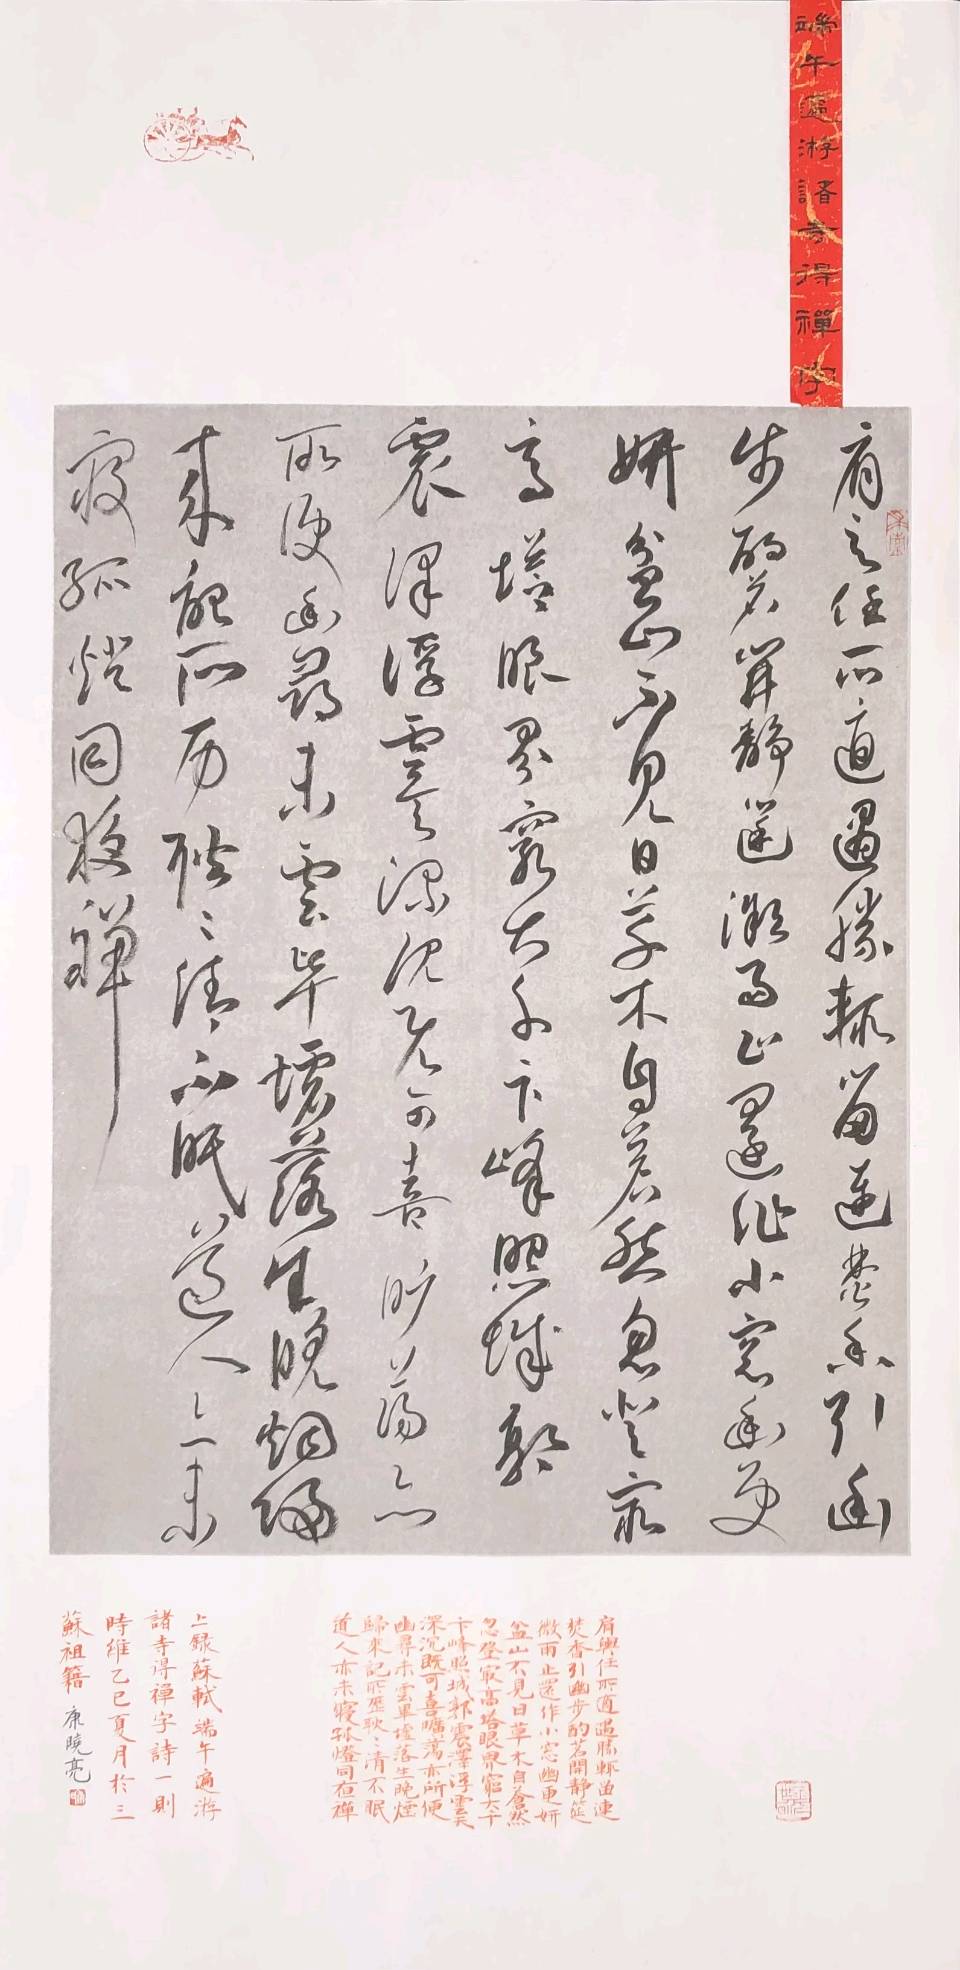 端午遍游諸寺得禪字
肩輿任所適遇勝輒留連焚香引幽
步酌茗開靜筵微雨止還作小窓幽更
妍盆山不見日草木自蒼然忽登最
高塔眼界窮大千卞峰照城郭
震澤浮雲天深沉既可喜曠蕩亦
所便幽尋未雲畢墟落生晚烟歸
來記所历耿〻清不眠道人亦未
寢孤燈同夜禪
肩輿任所適遇勝輒留連
焚香引幽步酌茗開靜筵
微雨止還作小窓幽更妍
盆山不見日草木自蒼然
忽登最高塔眼界窮大千
卞峰照城郭震澤浮雲天
深沉既可喜曠蕩亦所便
幽尋未雲畢墟落生晚煙
歸來記所歷耿〻清不眠
道人亦未寢孤燈同夜禪
上録蘇軾端午遍游
諸寺得禪字詩一則
時維乙巳夏月於三
蘇祖籍 康曉亮